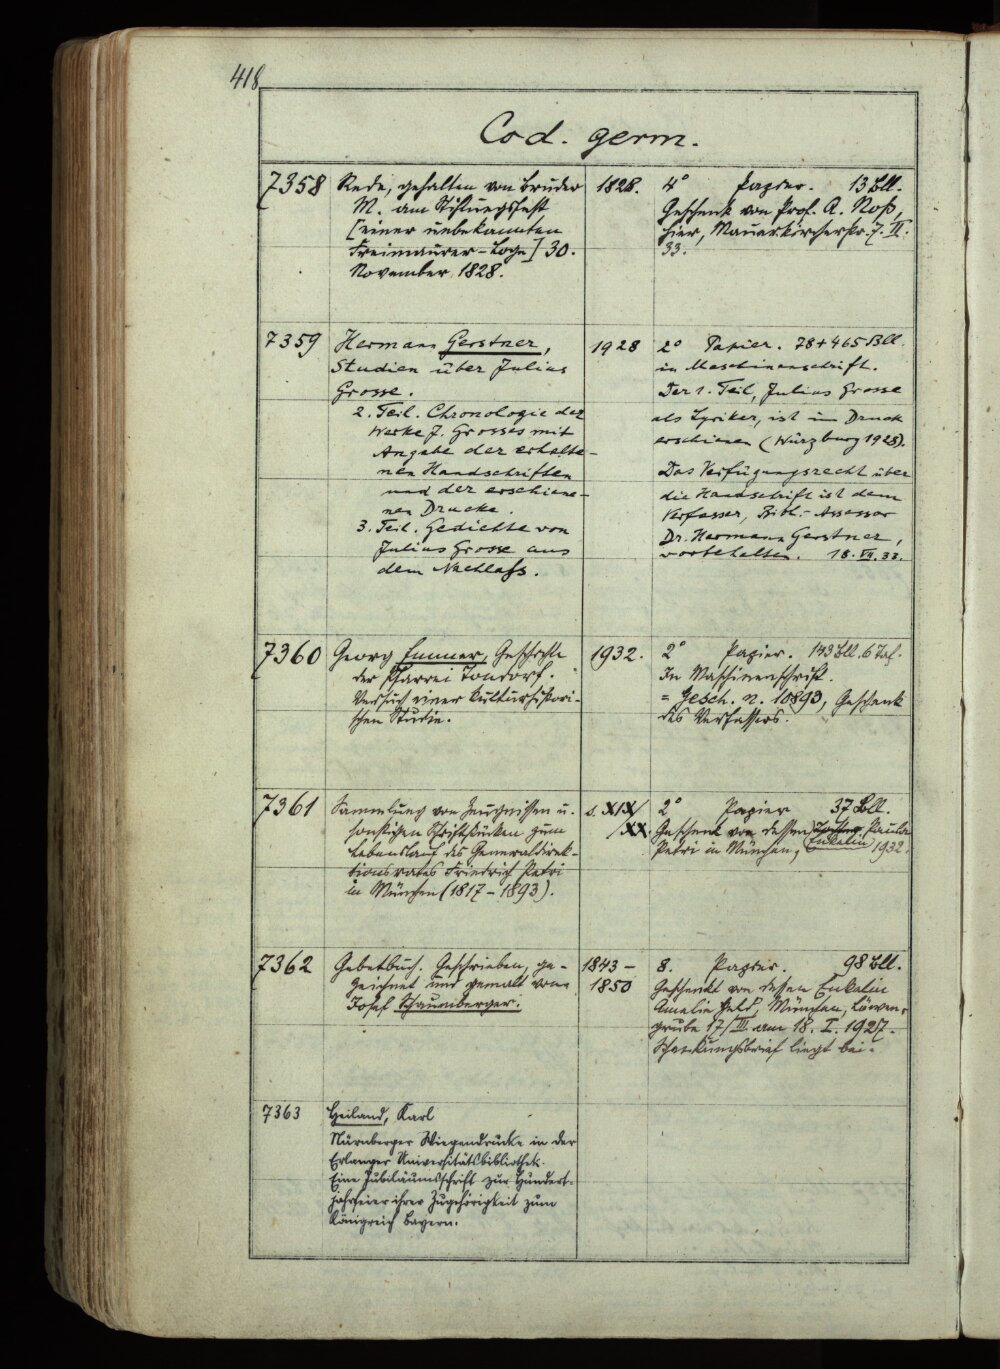 418
Cod. germ.
7358 Rede, gehalten von Bruder
M. am Stiftungsfest
[einer unbekannten
Freimaurer-Loge] 30.
November 1828.
1828.
4° Papier. 13 Bll.
Geschenk von Prof. A. Noß,
hier, Mauerkircherstr. 7. II.
33.
7359 Hermann Gerstner,
Studien über Julius
Grosse.
2. Teil. Chronologie der
Werke J. Grosses mit
Angabe der erhalte-
nen Handschriften
und der erschiene-
nen Drucke.
3. Teil. Gedichte von
Julius Grosse aus
dem Nachlaß.
1928
2° Papier. 78+465 Bll.
in Maschinenschrift.
Der 1. Teil, Julius Grosse
als Lyriker, ist im Druck
erschienen (Würzburg 1928).
Das Verfügungsrecht über
die Handschrift ist dem
Verfasser, Bibl.-Assessor
Dr. Hermann Gerstner,
vorbehalten. 18. VII. 33.
7360 Georg Emmer, Geschichte
der Pfarrei Tondorf.
Versuch einer kulturhistori-
schen Studie.
1932.
2° Papier. 143 Bll. 6 Taf.
In Maschinenschrift.
= Gesch. n. 10893, Geschenk
des Verfassers.
7361 Sammlung von Zeugnissen u.
sonstigen Schriftstücken zum
Lebenslauf des Generaldirek-
tionsrates Friedrich Petri
in München (1817-1893).
s. XIX/
/XX.
2° Papier 37 Bll.
Geschenk von dessen Tochter Paula
Enkelin
Petri in München, 1932.
7362 Gebetbuch. Geschrieben, ge-
zeichnet und gemalt von
Josef Schaumberger.
1843-
1850
8. Papier. 98 Bll.
Geschenkt von dessen Enkelin
Amalie Held, München, Löwen-
grube 17/III am 18. I. 1927.
Schenkungsbrief liegt bei.
7363 Heiland, Karl
Nürnberger Wiegendrucke in der
Erlanger Universitätsbibliothek.
Eine Jubiläumsschrift zur Hundert-
jahrfeier ihrer Zugehörigkeit zum
Königreich Bayern.